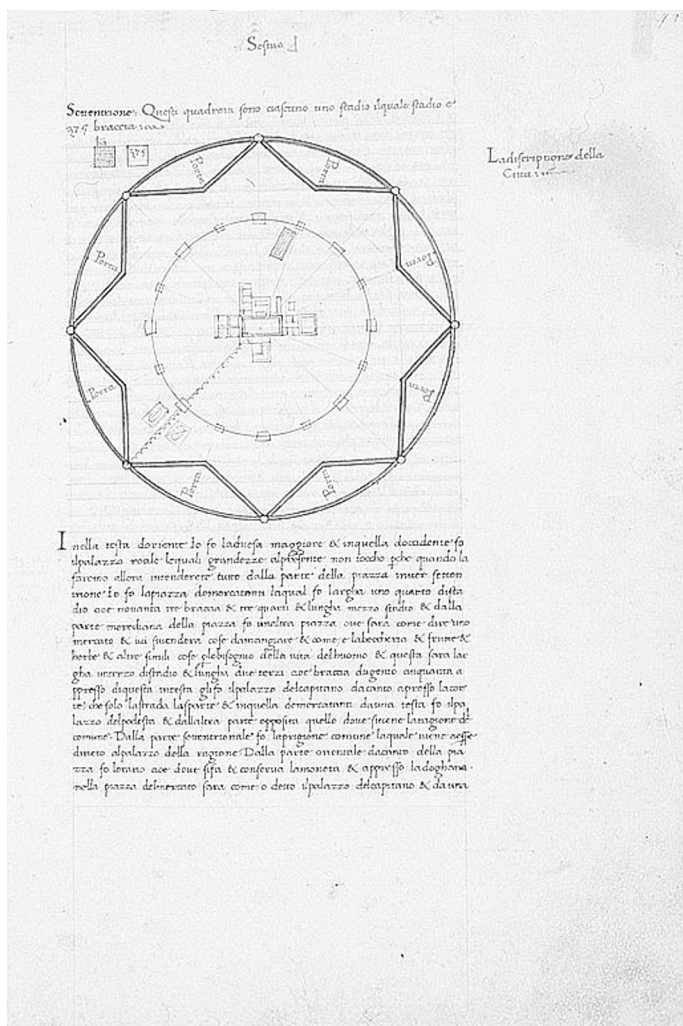 Sestus
Settentrione: Questi quadretti sono ciascuno uno stadio ilquale stadio e
375 braccia
375
Ladiscriptione della
Citta
Porta
Porta
Porta
Porta
Porta
Porta
Porta
Porta
Inella testa doriente Io fo lachiesa maggiore & inquella doccidente fo
ilpalazzo reale lequali grandezze alpresente non toccho pche quando la
faremo allora intenderete tutto dalla parte della piazza inver setten
trione Io fo lapiazza demercatanti laqual fo largha uno quarto dista
dio cioe novanta tre braccia & tre quarti & lungha mezzo stadio & dalla
parte meredianna della piazza fo unaltra piazza ove sara come dire uno
mercato & ivi sivendera cose damangiare & come e labeccheria & frutte &
herbe & altre simili cose albisogno della vita delhuomo & questa fara lar
gha unterzo distadio & lungha due terzi cioe braccia dugento cinquanta a
ppresso diquesta intesta glifo ilpalazzo delcapitano dacanto apresso lacor
te che solo lastrada lasparte & inquella demercatanti dauna testa fo ilpa
lazzo delpodesta & dallaltra parte opposita quello dove sitiene laragione del
comune. Dalla parte settentrionale fo laprigione comune laquale viene
dirieto alpalazzo della ragione Dalla parte orientale dacanto della pia
zza fo lerario cioe dove sifa & conserva lamoneta & appresso ladoghana.
nella piazza delmercato sara come o detto ilpalazzo delcapitano & dauna